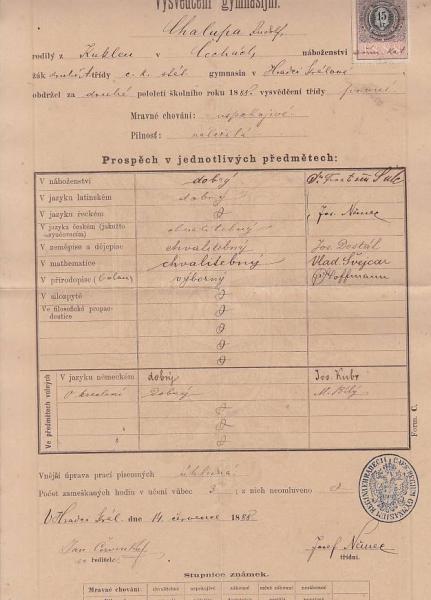 Vysvědčení gymnasijní.
Chalupa Rudolf,
rodilý z Kuklen v Čechách, náboženství řím. kat.
žák druhé třídy c. k. stát. gymnasia v Hradci Králové
obdržel za druhé pololetí školního roku 1888. vysvědčení třídy první
Mravné chování: uspokojivé
Pilnost: náležitá
Prospěch v jednotlivých předmětech:
V náboženství dobrý
V jazyku latinském dobrý
V jazyku řeckém Jos. Němec
V jazyku českém (jakožto vyučovacím) chvalitebný
V zeměpise a dějepise chvalitebný Jos. Dostál
V mathematice chvalitebný Vlad. Švejcar
V přírodopise výborný Hoffmann
V silozpytě
Ve filosofické propaedeutice
Ve předmětech volných
V jazyku německém dobrý Jos. Kubr
O kreslení Dobrý M. Bílý
Form. C.
Vnější úprava prací písemných úhledná
Počet zameškaných hodin v učení vůbec 3 ; z nich neomluveno 0
V Hradci Král. dne 14. července 1888
Jan Červenka Josef Němec
ředitel. třídní.
Stupnice známek.
Mravné chování: chvalitebné uspokojivé zákonné méně zákonné nezákonné
15